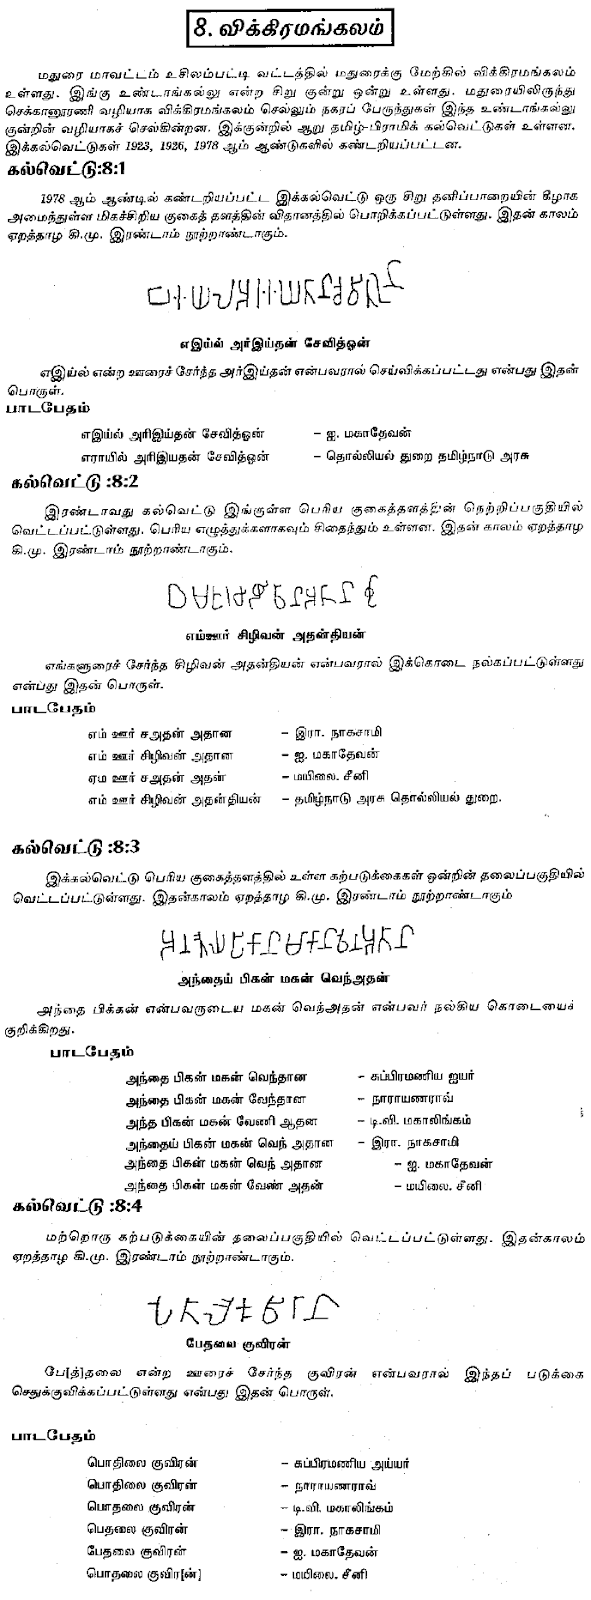 8. விக்கிரமங்கலம்
மதுரை மாவட்டம் உசிலம்பட்டி வட்டத்தில் மதுரைக்கு மேற்கில் விக்கிரமங்கலம்
உள்ளது. இங்கு உண்டாங்கல்லு என்ற சிறு குன்று ஒன்று உள்ளது. மதுரையிலிருந்து
செக்கானூரணி வழியாக விக்கிரமங்கலம் செல்லும் நகரப் பேருந்துகள் இந்த உண்டாங்கல்லு
குன்றின் வழியாகச் செல்கின்றன. இக்குன்றில் ஆறு தமிழ்-பிராமிக் கல்வெட்டுகள் உள்ளன.
இக்கல்வெட்டுகள் 1923, 1926, 1978 ஆம் ஆண்டுகளில் கண்டறியப்பட்டன.
கல்வெட்டு:8:1
1978 ஆம் ஆண்டில் கண்டறியப்பட்ட இக்கல்வெட்டு ஒரு சிறு தனிப்பாறையின் கீழாக
அமைந்துள்ள மிகச்சிறிய குகைத் தளத்தின் விதானத்தில் பொறிக்கப்பட்டுள்ளது. இதன் காலம்
ஏறத்தாழ கி.மு. இரண்டாம் நூற்றாண்டாகும்.
எஇய்ல் அர்இய்தன் சேவித்ஓன்
எஇய்ல் என்ற ஊரைச் சேர்ந்த அர்இய்தன் என்பவரால் செய்விக்கப்பட்டது என்பது இதன்
பொருள்.
பாடபேதம்
எஇய்ல் அரிஇய்தன் சேவித்ஓன் – ஐ. மகாதேவன்
எராயில் அரிஇயதன் சேவித்ஓன் – தொல்லியல் துறை தமிழ்நாடு அரசு
கல்வெட்டு :8:2
இரண்டாவது கல்வெட்டு இங்குள்ள பெரிய குகைத்தளத்தின் நெற்றிப்பகுதியில்
வெட்டப்பட்டுள்ளது. பெரிய எழுத்துக்களாகவும் சிதைந்தும் உள்ளன. இதன் காலம் ஏறத்தாழ
கி.மு. இரண்டாம் நூற்றாண்டாகும்.
எம்ஊர் சிழிவன் அதன்தியன்
எங்களூரைச் சேர்ந்த சிழிவன் அதன்தியன் என்பவரால் இக்கொடை நல்கப்பட்டுள்ளது
என்பது இதன் பொருள்.
பாடபேதம்
எம் ஊர் சஅதன் அதான – இரா. நாகசாமி
எம் ஊர் சிழிவன் அதான – ஐ. மகாதேவன்
ஏம ஊர் சஅதன் அதன் – மயிலை. சீனி
எம் ஊர் சிழிவன் அதன்தியன் – தமிழ்நாடு அரசு தொல்லியல் துறை.
கல்வெட்டு :8:3
இக்கல்வெட்டு பெரிய குகைத்தளத்தில் உள்ள கற்படுக்கைகள் ஒன்றின் தலைப்பகுதியில்
வெட்டப்பட்டுள்ளது. இதன்காலம் ஏறத்தாழ கி.மு. இரண்டாம் நூற்றாண்டாகும்
அந்தைய் பிகன் மகன் வெந்அதன்
அந்தை பிக்கன் என்பவருடைய மகன் வெந்அதன் என்பவர் நல்கிய கொடையைச்
குறிக்கிறது.
பாடபேதம்
அந்தை பிகன் மகன் வெந்தான – சுப்பிரமணிய ஐயர்
அந்தை பிகன் மகன் வேந்தான – நாராயணராவ்
அந்த பிகன் மகன் வேணி ஆதன – டி.வி. மகாலிங்கம்
அந்தைய் பிகன் மகன் வெந் அதான – இரா. நாகசாமி
அந்தை பிகன் மகன் வெந் அதான – ஐ. மகாதேவன்
அந்தை பிகன் மகன் வேண் அதன் – மயிலை. சீனி
கல்வெட்டு :8:4
மற்றொரு கற்படுக்கையின் தலைப்பகுதியில் வெட்டப்பட்டுள்ளது. இதன்காலம்
ஏறத்தாழ கி.மு. இரண்டாம் நூற்றாண்டாகும்.
பேதலை குவிரன்
பே[த்]தலை என்ற ஊரைச் சேர்ந்த குவிரன் என்பவரால் இந்தப் படுக்கை
செதுக்குவிக்கப்பட்டுள்ளது என்பது இதன் பொருள்.
பாடபேதம்
பொதிலை குவிரன் – சுப்பிரமணிய அய்யர்
பொதிலை குவிரன் – நாராயணராவ்
பொதலை குவிரன் – டி.வி. மகாலிங்கம்
பெதலை குவிரன் – இரா. நாகசாமி
பேதலை குவிரன் – ஐ. மகாதேவன்
பொதலை குவிர[ன்] – மயிலை. சீனி